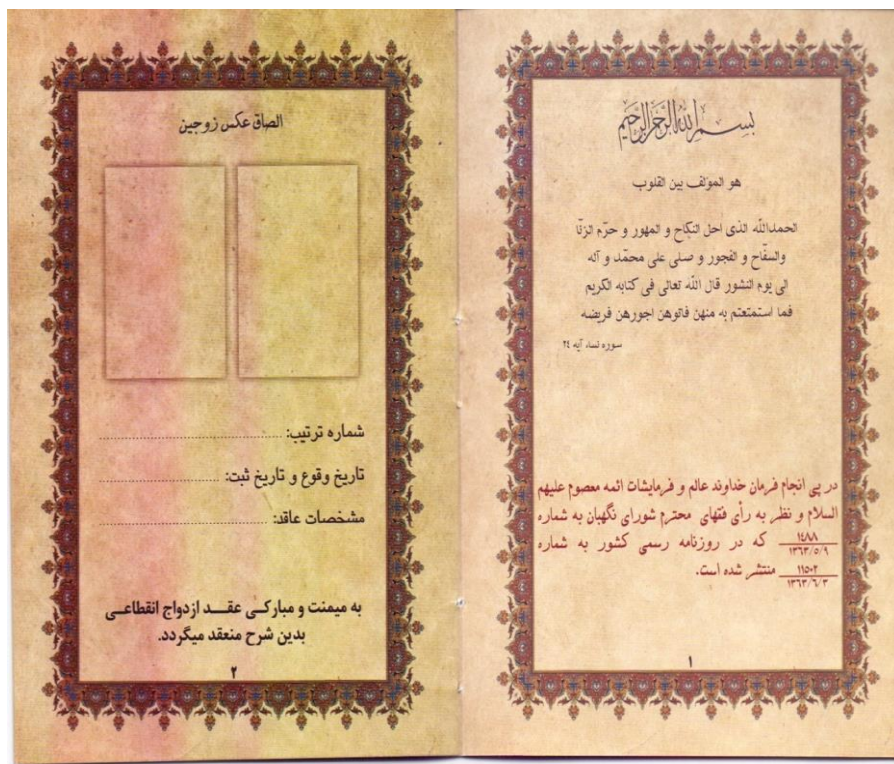 بسم الله الرحمن الرحیم
هو المؤلف بین القلوب
الحمدالله الذی احل النکاح و المهور و حرّم الزنّا
والسفّاح و الفجور و صلی علی محمّد و آله
الی یوم النشور قال اللّه تعالی فی کتابه الکریم
فما استمتعتم به منهن فاتوهن اجورهن فریضه
سوره نساء آیه ۲۴
در پی انجام فرمان خداوند عالم و فرمایشات ائمه معصوم علیهم
السلام و نظر به رأی فقهای محترم شورای نگهبان به شماره
۱۴۸۸
۱۳۶۳/۵/۹ که در روزنامه رسمی کشور به شماره
۱۱۵۰۲
۱۳۶۳/۶/۳ منتشر شده است.
۱
الصاق عکس زوجین
شماره ترتیب:
تاریخ وقوع و تاریخ ثبت:
مشخصات عاقد:
به میمنت و مبارکی عقد ازدواج انقطاعی
بدین شرح منعقد میگردد.
۲